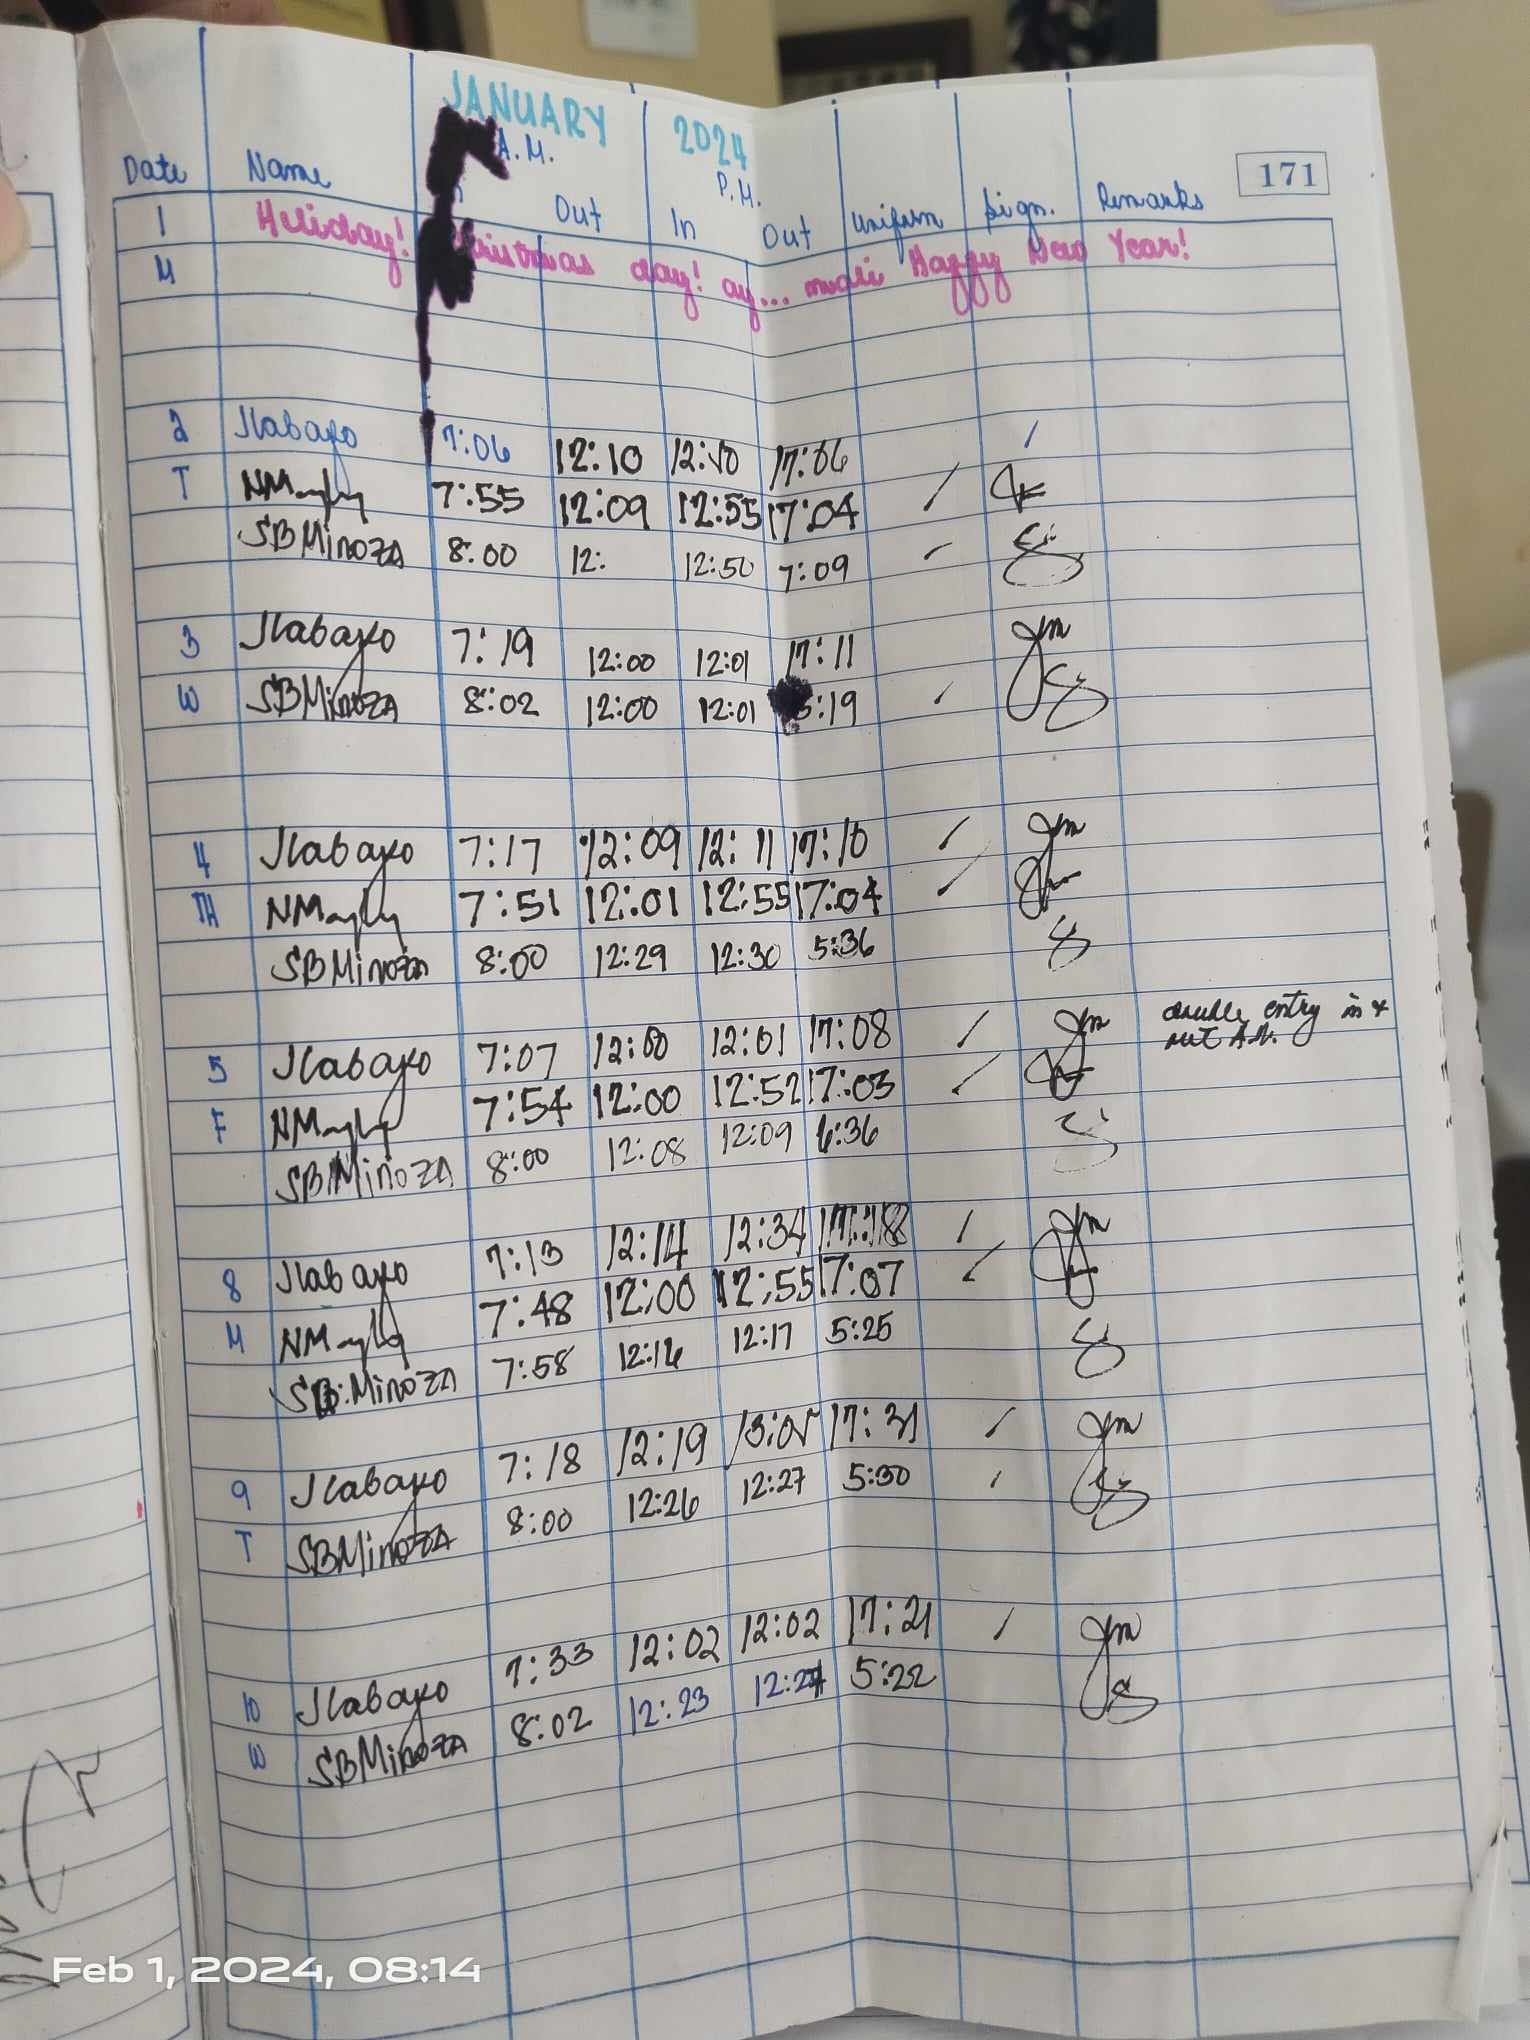 JANUARY 2024
A.M. P.M.
171
Date Name Out In Out Uniform Sign. Remarks
1 Holiday! Christmas day! ay... mali Happy New Year!
M
2 Jlabayo 7:06 12:10 12:10 17:06
T 7:55 12:09 12:55 17:04
SBMinoza 8:00 12: 12:50 7:09
3 Jlabayo 7:19 12:00 12:01 17:11
W SBMinoza 8:02 12:00 12:01 5:19
4 Jlabayo 7:17 12:09 12:11 17:10
TH 7:51 12:01 12:55 17:04
SBMinoza 8:00 12:29 12:30 5:36
5 Jlabayo 7:07 12:00 12:01 17:08 double entry in &
out A.M.
F 7:54 12:00 12:52 17:03
SBMinoza 8:00 12:08 12:09 6:36
8 Jlabayo 7:13 12:14 12:34 17:18
M 7:48 12:00 12:55 17:07
SB.Minoza 7:58 12:16 12:17 5:25
9 Jlabayo 7:18 12:19 17:31
T SBMinoza 8:00 12:26 12:27 5:30
10 Jlabayo 7:33 12:02 12:02 17:21
W SBMinoza 8:02 12:23 12:24 5:22
Feb 1, 2024, 08:14